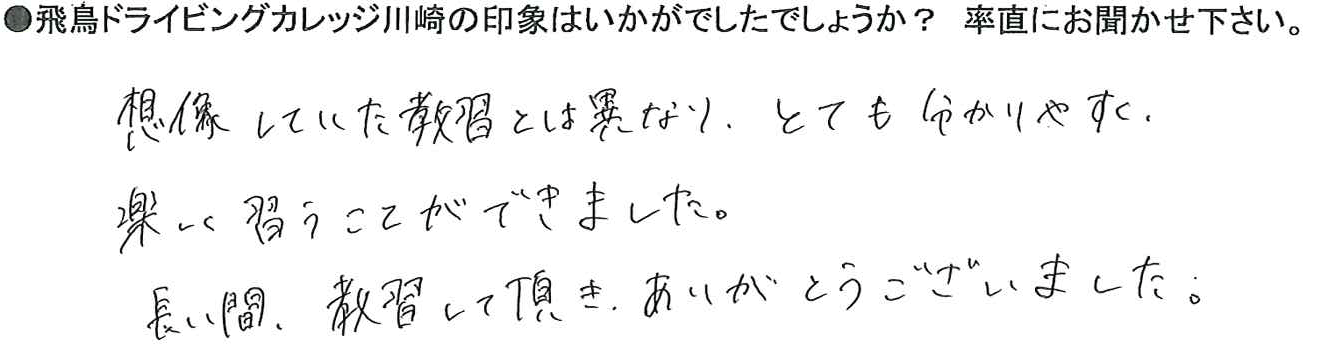 ●飛鳥ドライビングカレッジ川崎の印象はいかがでしたでしょうか？　率直にお聞かせ下さい。
想像していた教習とは異なり、とても分かりやすく、
楽しく習うことができました。
長い間、教習して頂き、ありがとうございました。